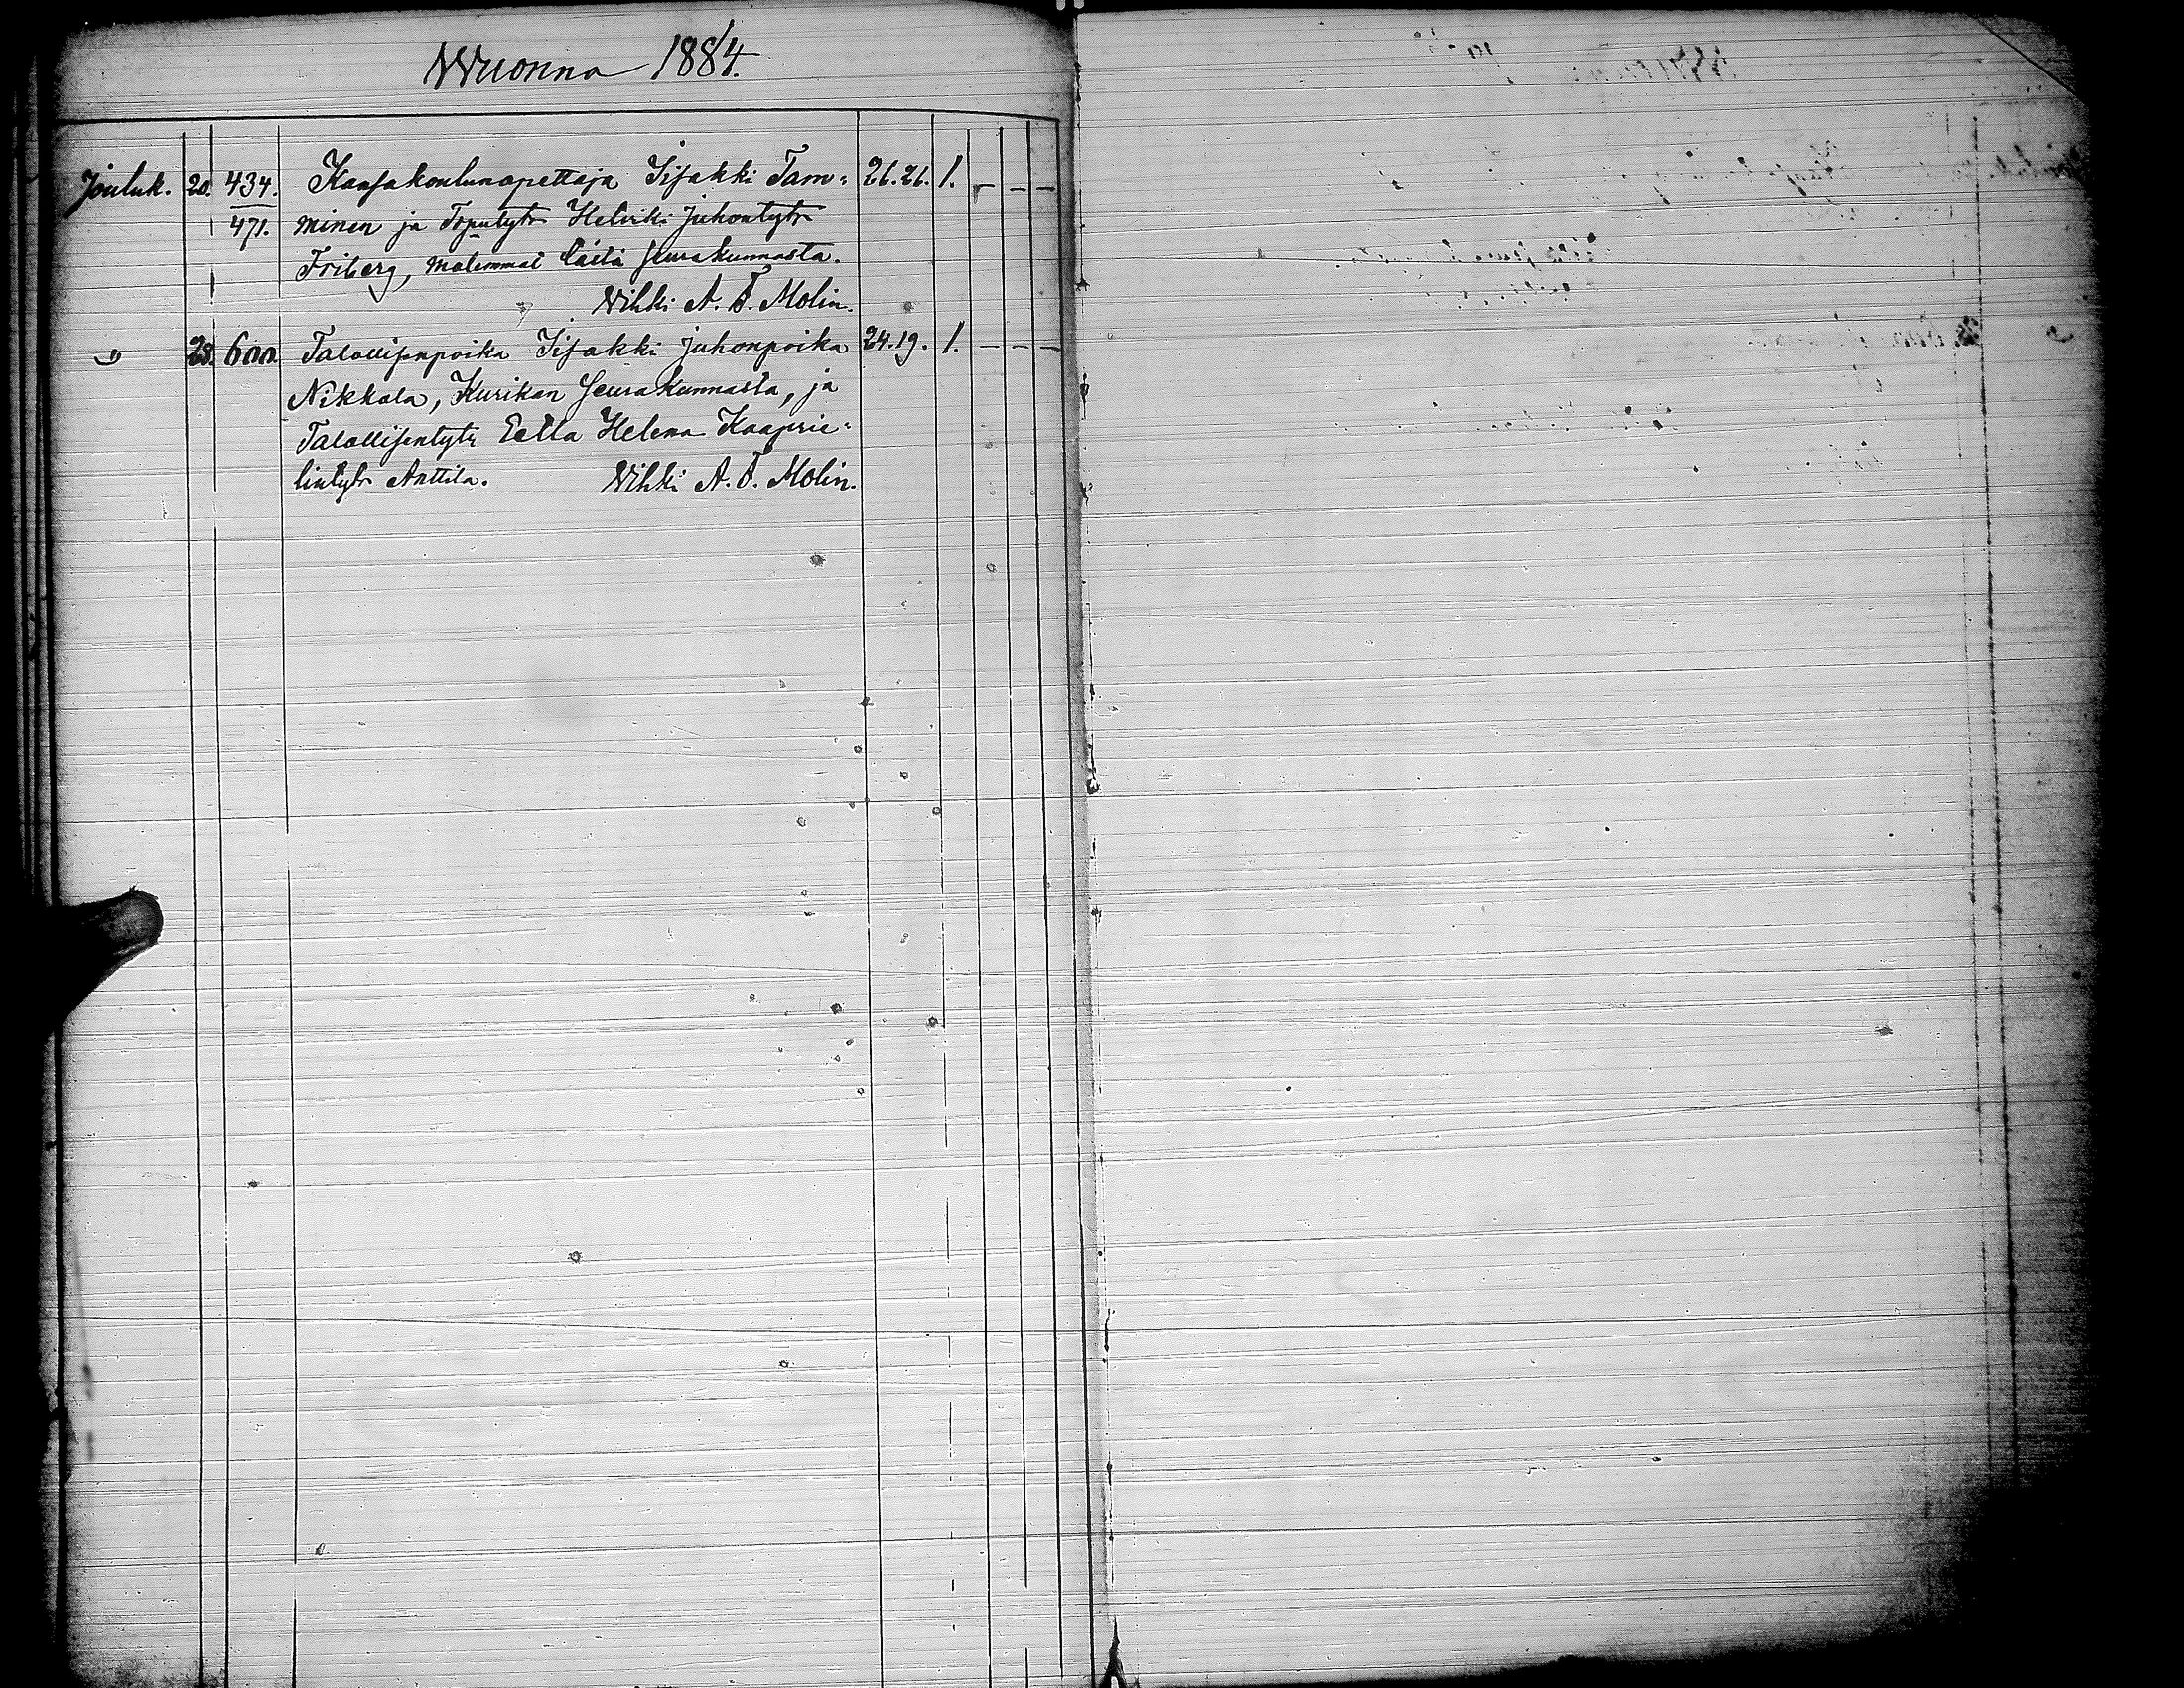 Wuonna 1884.
Jouluk. 20. 434. Kansakoulunopettaja Iisakki Tam= 26. 26. 1. – – –
471. minen ja Toruntytr Helviki Juhontytr
Friberg, molemmat tästä seurakunnasta.
Wihki A. F. Molin.
" 28. 600. Talollisenpoika Iisakki Juhonpoika 24. 19. 1. – – –
Nikkola, Kurikan seurakunnasta, ja
Talollisentytr Eella Helena Kaaprie=
lintytr Anttila. Wihki A. F. Molin.